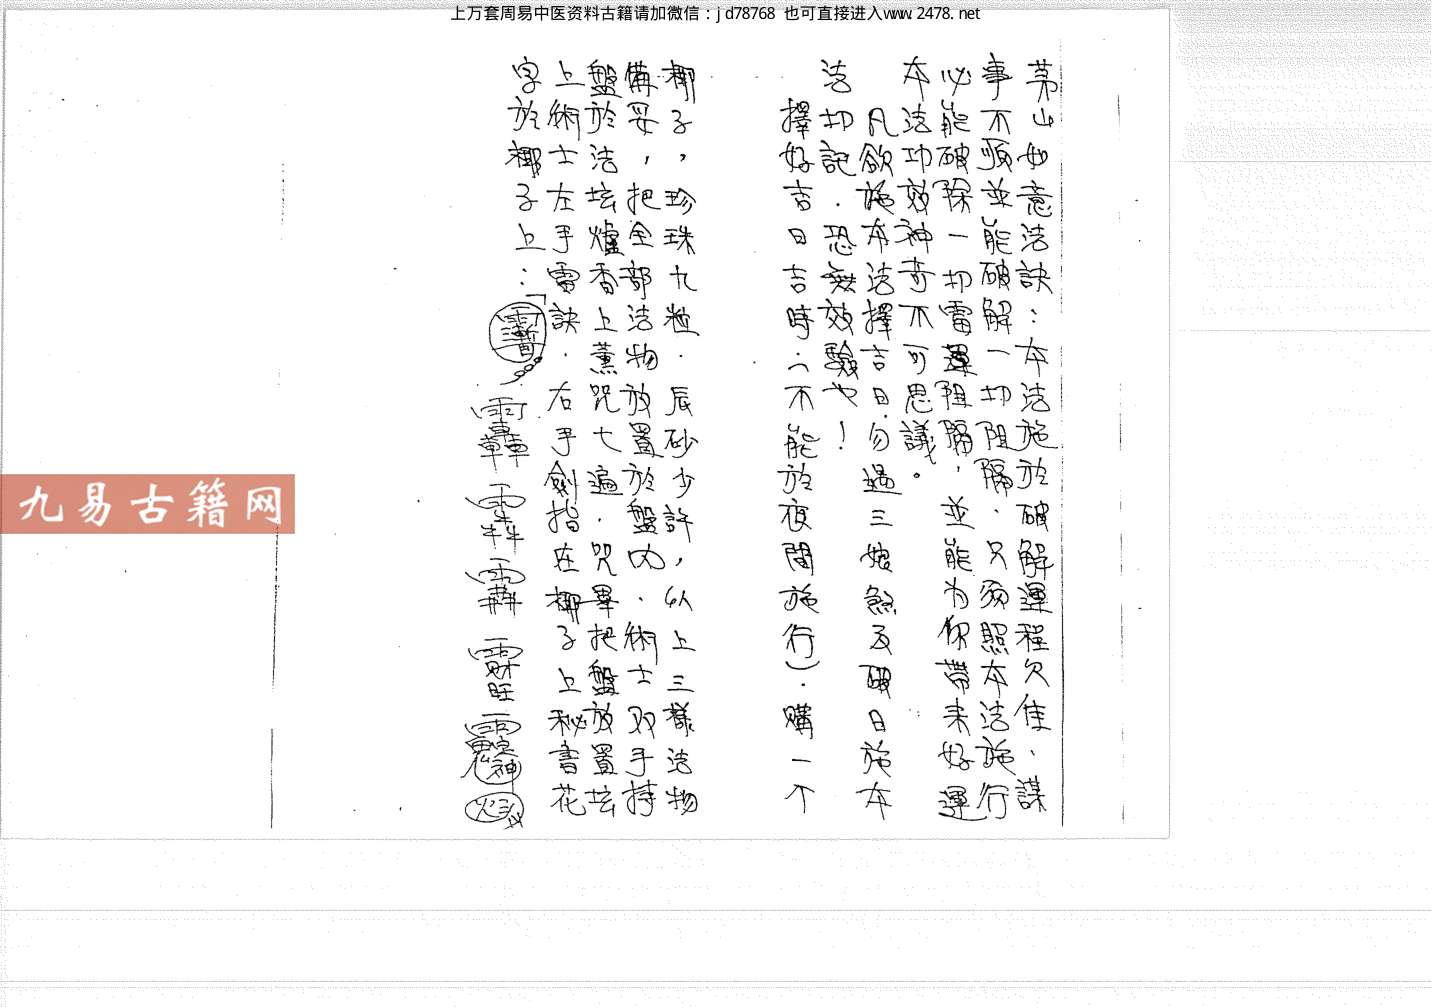 上万套周易中医资料古籍请加微信：jd78768 也可直接进入www.2478.net
茅山如意法訣：本法施於破解運程欠佳、謀
事不順並能破解一切阻隔．只須照本法施行
必能破除一切雷運阻隔，並能为你帶来好運
本法功效神奇不可思議。
凡欲施本法擇吉日勿過三娘煞及破日施本
法切記．恐無效驗也！
擇好吉日吉時．（不能於夜間施行）．購一个
椰子，珍珠九粒．辰砂少許，以上三樣法物
備妥，把全部法物放置於盤内．術士双手持
盤於法坛爐香上薰咒七遍．咒畢把盤放置坛
上術士左手雷訣．右手劍指在椰子上秘書花
字於椰子上：「
九易古籍网